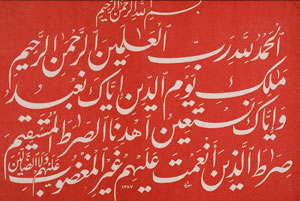 بسم الله الرحمن الرحيم
الحمد لله رب العلمين الرحمن الرحيم
ملك يوم الدين اياك نعبد
واياك نستعين اهدنا الصرط المستقيم
صرط الذين أنعمت عليهم غير المغضوب
عليهم ولا الضالين